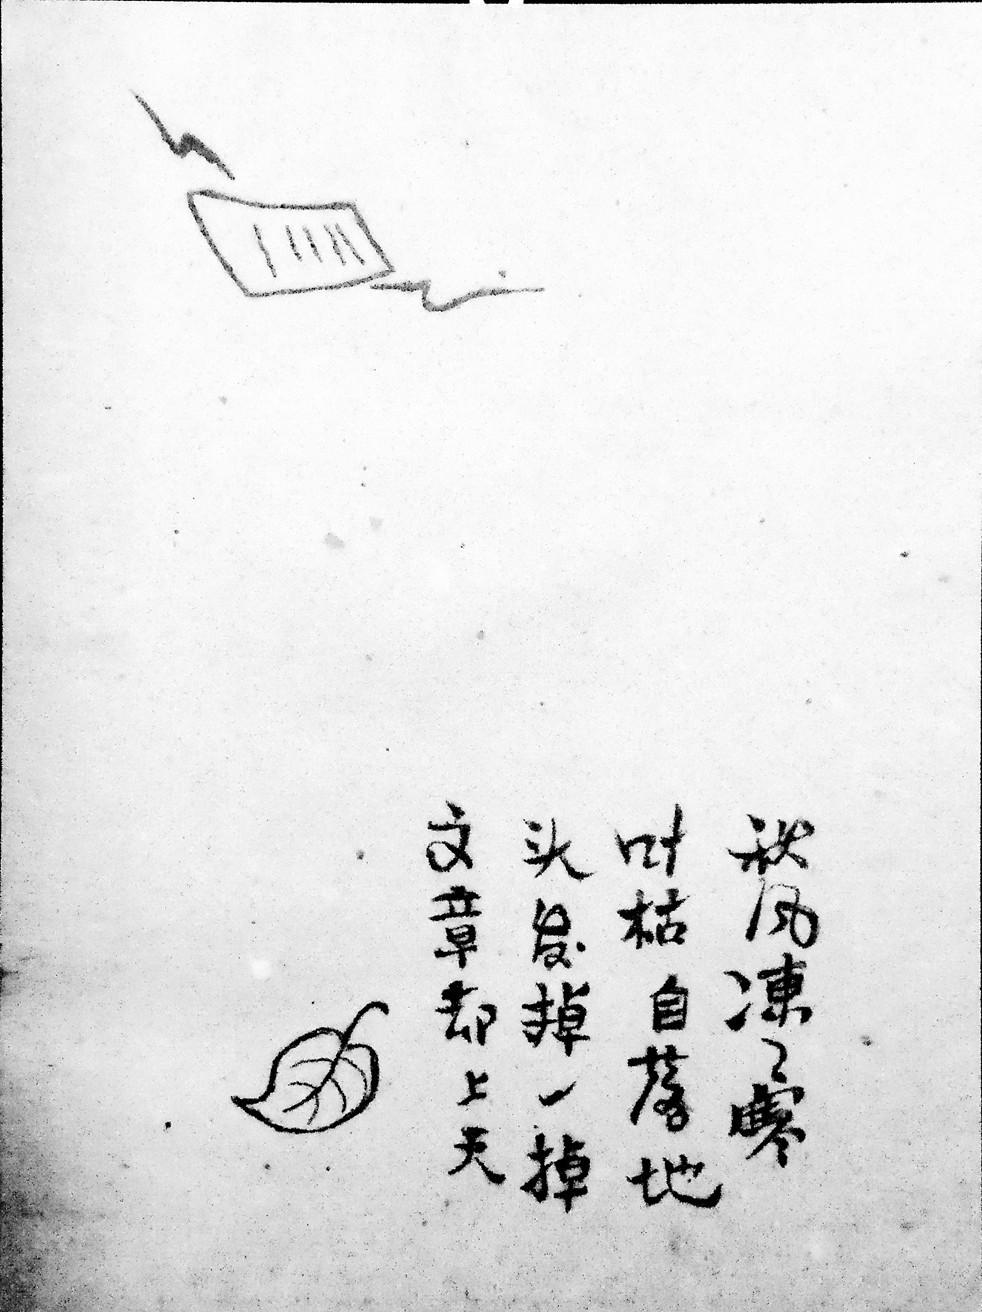 秋风凍〻寒
叶枯自落地
头发掉一掉
文章却上天